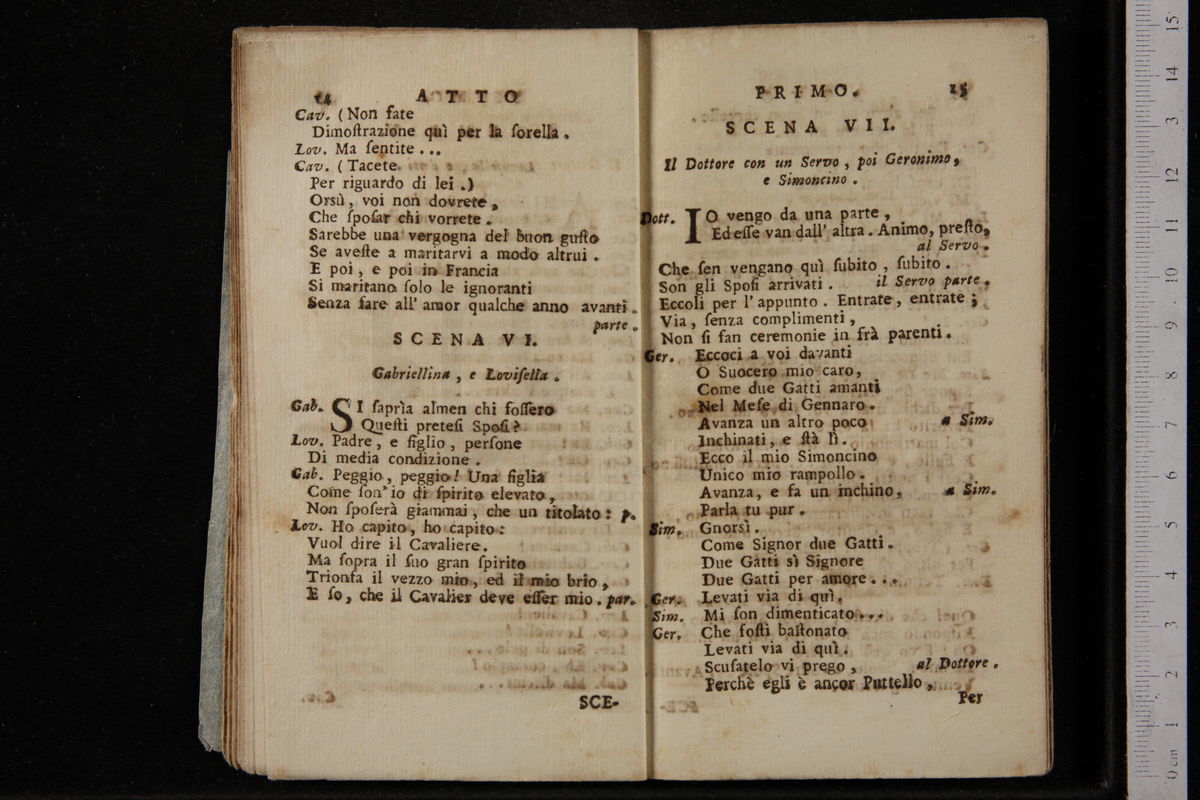 14 ATTO
Cav. (Non fate
Dimoſtrazione quì per la ſorella.
Lov. Ma ſentite...
Cav. (Tacete
Per riguardo di lei.)
Orsù, voi non dovrete,
Che ſpoſar chi vorrete.
Sarebbe una vergogna del buon guſto
Se aveſte a maritarvi a modo altrui.
E poi, e poi in Francia
Si maritano ſolo le ignoranti
Senza fare all' amor qualche anno avanti.
parte.
SCENA VI.
Gabriellina, e Loviſella.
Gab. SI ſaprìa almen chi foſſero
Queſti preteſi Spoſi?
Lov. Padre, e figlio, perſone
Di media condizione.
Gab. Peggio, peggio! Una figlia
Come ſon' io di ſpirito elevato,
Non ſpoſerà giammai, che un titolato: p.
Lov. Ho capito, ho capito:
Vuol dire il Cavaliere.
Ma ſopra il ſuo gran ſpirito
Trionfa il vezzo mio, ed il mio brio,
E ſo, che il Cavalier deve eſſer mio. par.
SCE-
PRIMO. 15
SCENA VII.
Il Dottore con un Servo, poi Geronimo,
e Simoncino.
Dott. IO vengo da una parte,
Ed eſſe van dall' altra. Animo, preſto,
al Servo.
Che ſen vengano quì ſubito, ſubito.
Son gli Spoſi arrivati. il Servo parte.
Eccoli per l'appunto. Entrate, entrate;
Via, ſenza complimenti,
Non ſi fan ceremonie in frà parenti.
Ger. Eccoci a voi davanti
O Suocero mio caro,
Come due Gatti amanti
Nel Meſe di Gennaro.
Avanza un altro poco a Sim.
Inchinati, e ſtà lì.
Ecco il mio Simoncino
Unico mio rampollo.
Avanza, e fa un inchino, a Sim.
Parla tu pur.
Sim. Gnorsì.
Come Signor due Gatti.
Due Gatti sì Signore
Due Gatti per amore...
Ger. Levati via di quì.
Sim. Mi ſon dimenticato...
Ger. Che foſti baſtonato
Levati via di quì.
Scuſatelo vi prego, al Dottore.
Perchè egli è ancor Puttello,
Per